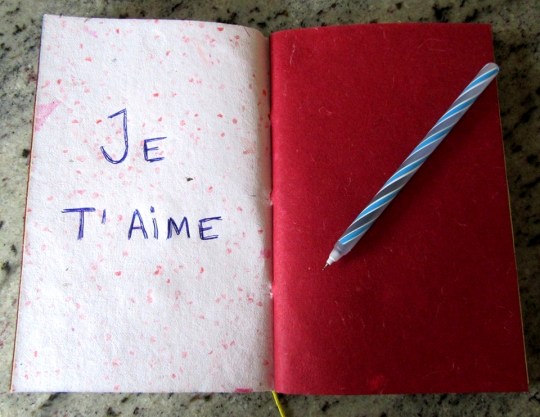 Je
T'AiME